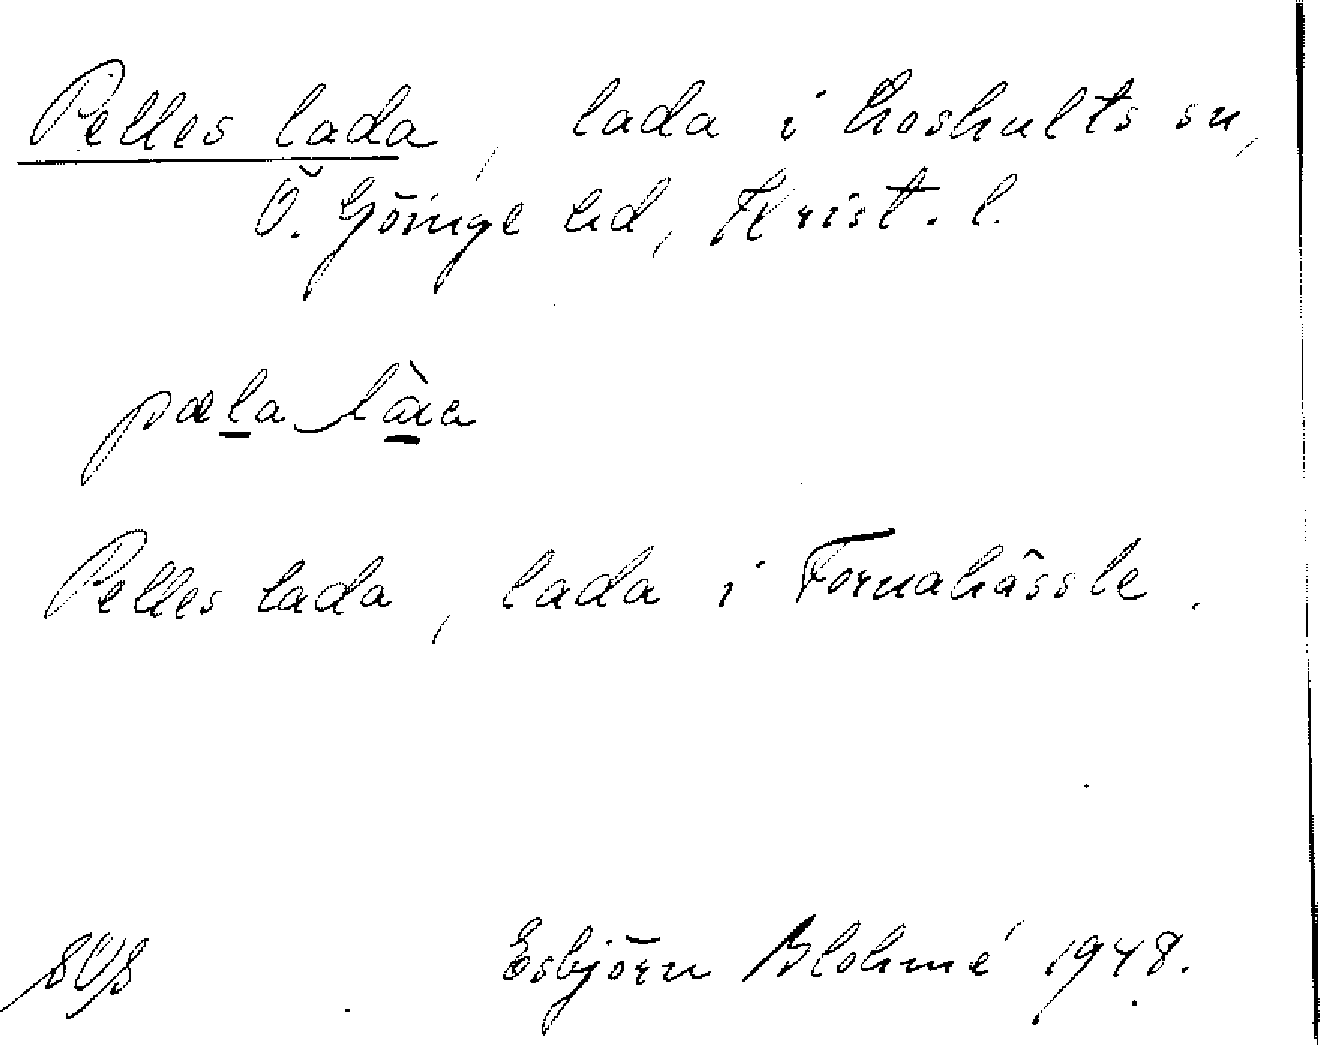 Pelles lada, lada i Loshults sn,
Ö. Göinge hd, Krist. l.
pæla_làɑa
Pelles lada, lada i Fornahässle.
Esbjörn Blohmé 1948.